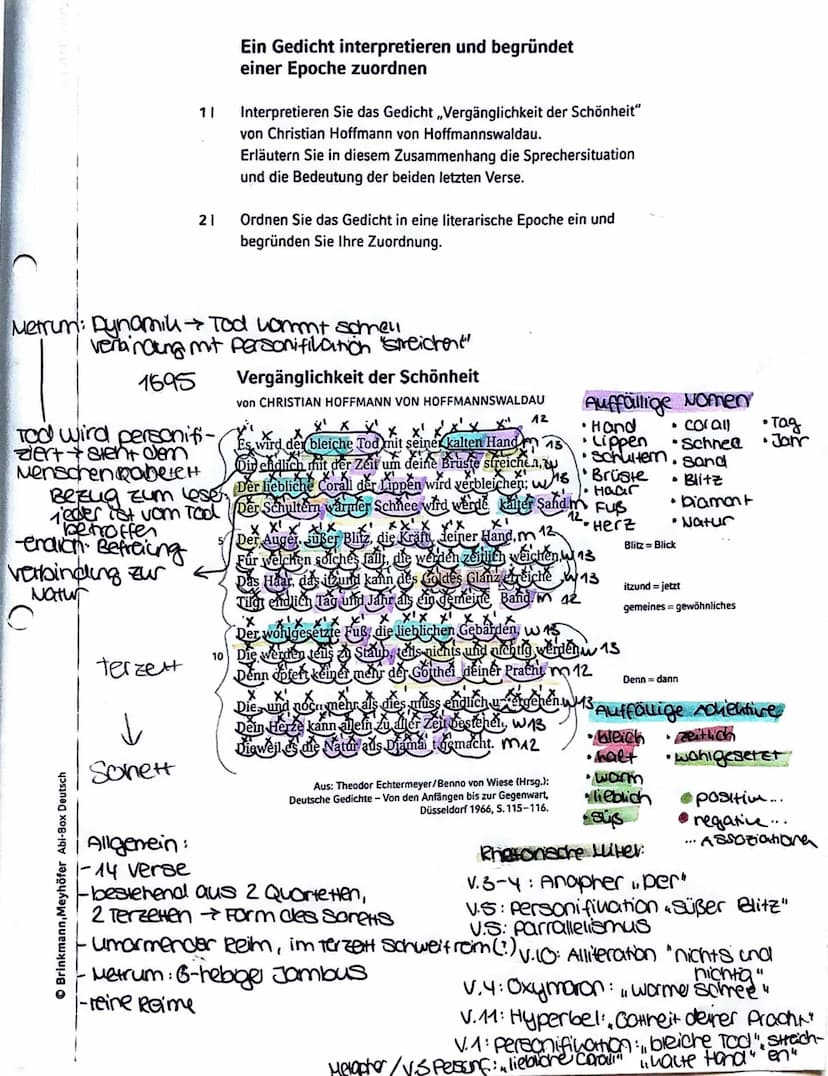 Ein Gedicht interpretieren und begründet
einer Epoche zuordnen
1 I Interpretieren Sie das Gedicht „Vergänglichkeit der Schönheit“
von Christian Hoffmann von Hoffmannswaldau.
Erläutern Sie in diesem Zusammenhang die Sprechersituation
und die Bedeutung der beiden letzten Verse.
2 I Ordnen Sie das Gedicht in eine literarische Epoche ein und
begründen Sie Ihre Zuordnung.
Metrum: Dynamik → Tod kommt schnell
Verbindung mit Personifikation "streichen"
1695
Vergänglichkeit der Schönheit
von CHRISTIAN HOFFMANN VON HOFFMANNSWALDAU
Es wird der bleiche Tod mit seiner kalten Hand m 12
Dir endlich mit der Zeit um deine Brüste streichen, w 13
Der liebliche Corall der Lippen wird verbleichen; w 13
Der Schultern warmer Schnee wird werden kalter Sand. m 12
5 Der Augen süßer Blitz, die Kräfte deiner Hand, m 12
Für welchen solches fällt, die werden zeitlich weichen, w 13
Das Haar, das itzund kann des Goldes Glanz erreichen, w 13
Tilgt endlich Tag und Jahr als ein gemeines Band. m 12
Der wohlgesetzte Fuß, die lieblichen Gebärden, w 13
10 Die werden teils zu Staub, teils nichts und nichtig werden, w 13
Denn opfert keiner mehr der Gottheit deiner Pracht. m 12
Dies und noch mehr als dies muss endlich untergehen, w 13
Dein Herze kann allein zu aller Zeit bestehen, w 13
Dieweil es die Natur aus Diamant gemacht. m 12
Tod wird personifi-
ziert → steht dem
Menschen
Bezug zum Leser
jeder ist vom Tod
betroffen
-endlich: Befreiung
Verbindung zur
Natur
Terzett
↓
Sonett
Auffällige Nomen
• Hand
• Lippen
• Schultern
• Brüste
• Haar
• Fuß
• Herz
• Corall
• Schnee
• Sand
• Blitz
• Diamant
• Natur
• Tag
• Jahr
Blitz = Blick
itzund = jetzt
gemeines = gewöhnliches
Denn = dann
Auffällige Adjektive
• bleich
• kalt
• warm
• lieblich
• süß
• zeitlich
• wohlgesetzt
positive...
negative...
... Assoziationen
Aus: Theodor Echtermeyer/Benno von Wiese (Hrsg.):
Deutsche Gedichte – Von den Anfängen bis zur Gegenwart,
Düsseldorf 1966, S. 115–116.
© Brinkmann,Meyhöfer Abi-Box Deutsch
Allgemein:
- 14 Verse
- bestehend aus 2 Quartetten,
2 Terzetten → Form des Sonetts
- umarmender Reim, im Terzett Schweifreim (?)
- Metrum: 6-hebiger Jambus
- reine Reime
Rhetorische Mittel:
V.3-4: Anapher „Der"
V.5: Personifikation „süßer Blitz"
V.5: Parallelismus
V.10: Alliteration "nichts und
nichtig"
V.4: Oxymoron: „warme Schnee"
V.11: Hyperbel: „Gottheit deiner Pracht"
V.1: Personifikation: „bleiche Tod", „streich-
en" „kalte Hand"
Metapher / V.3 Personif.: „liebliche Corall"